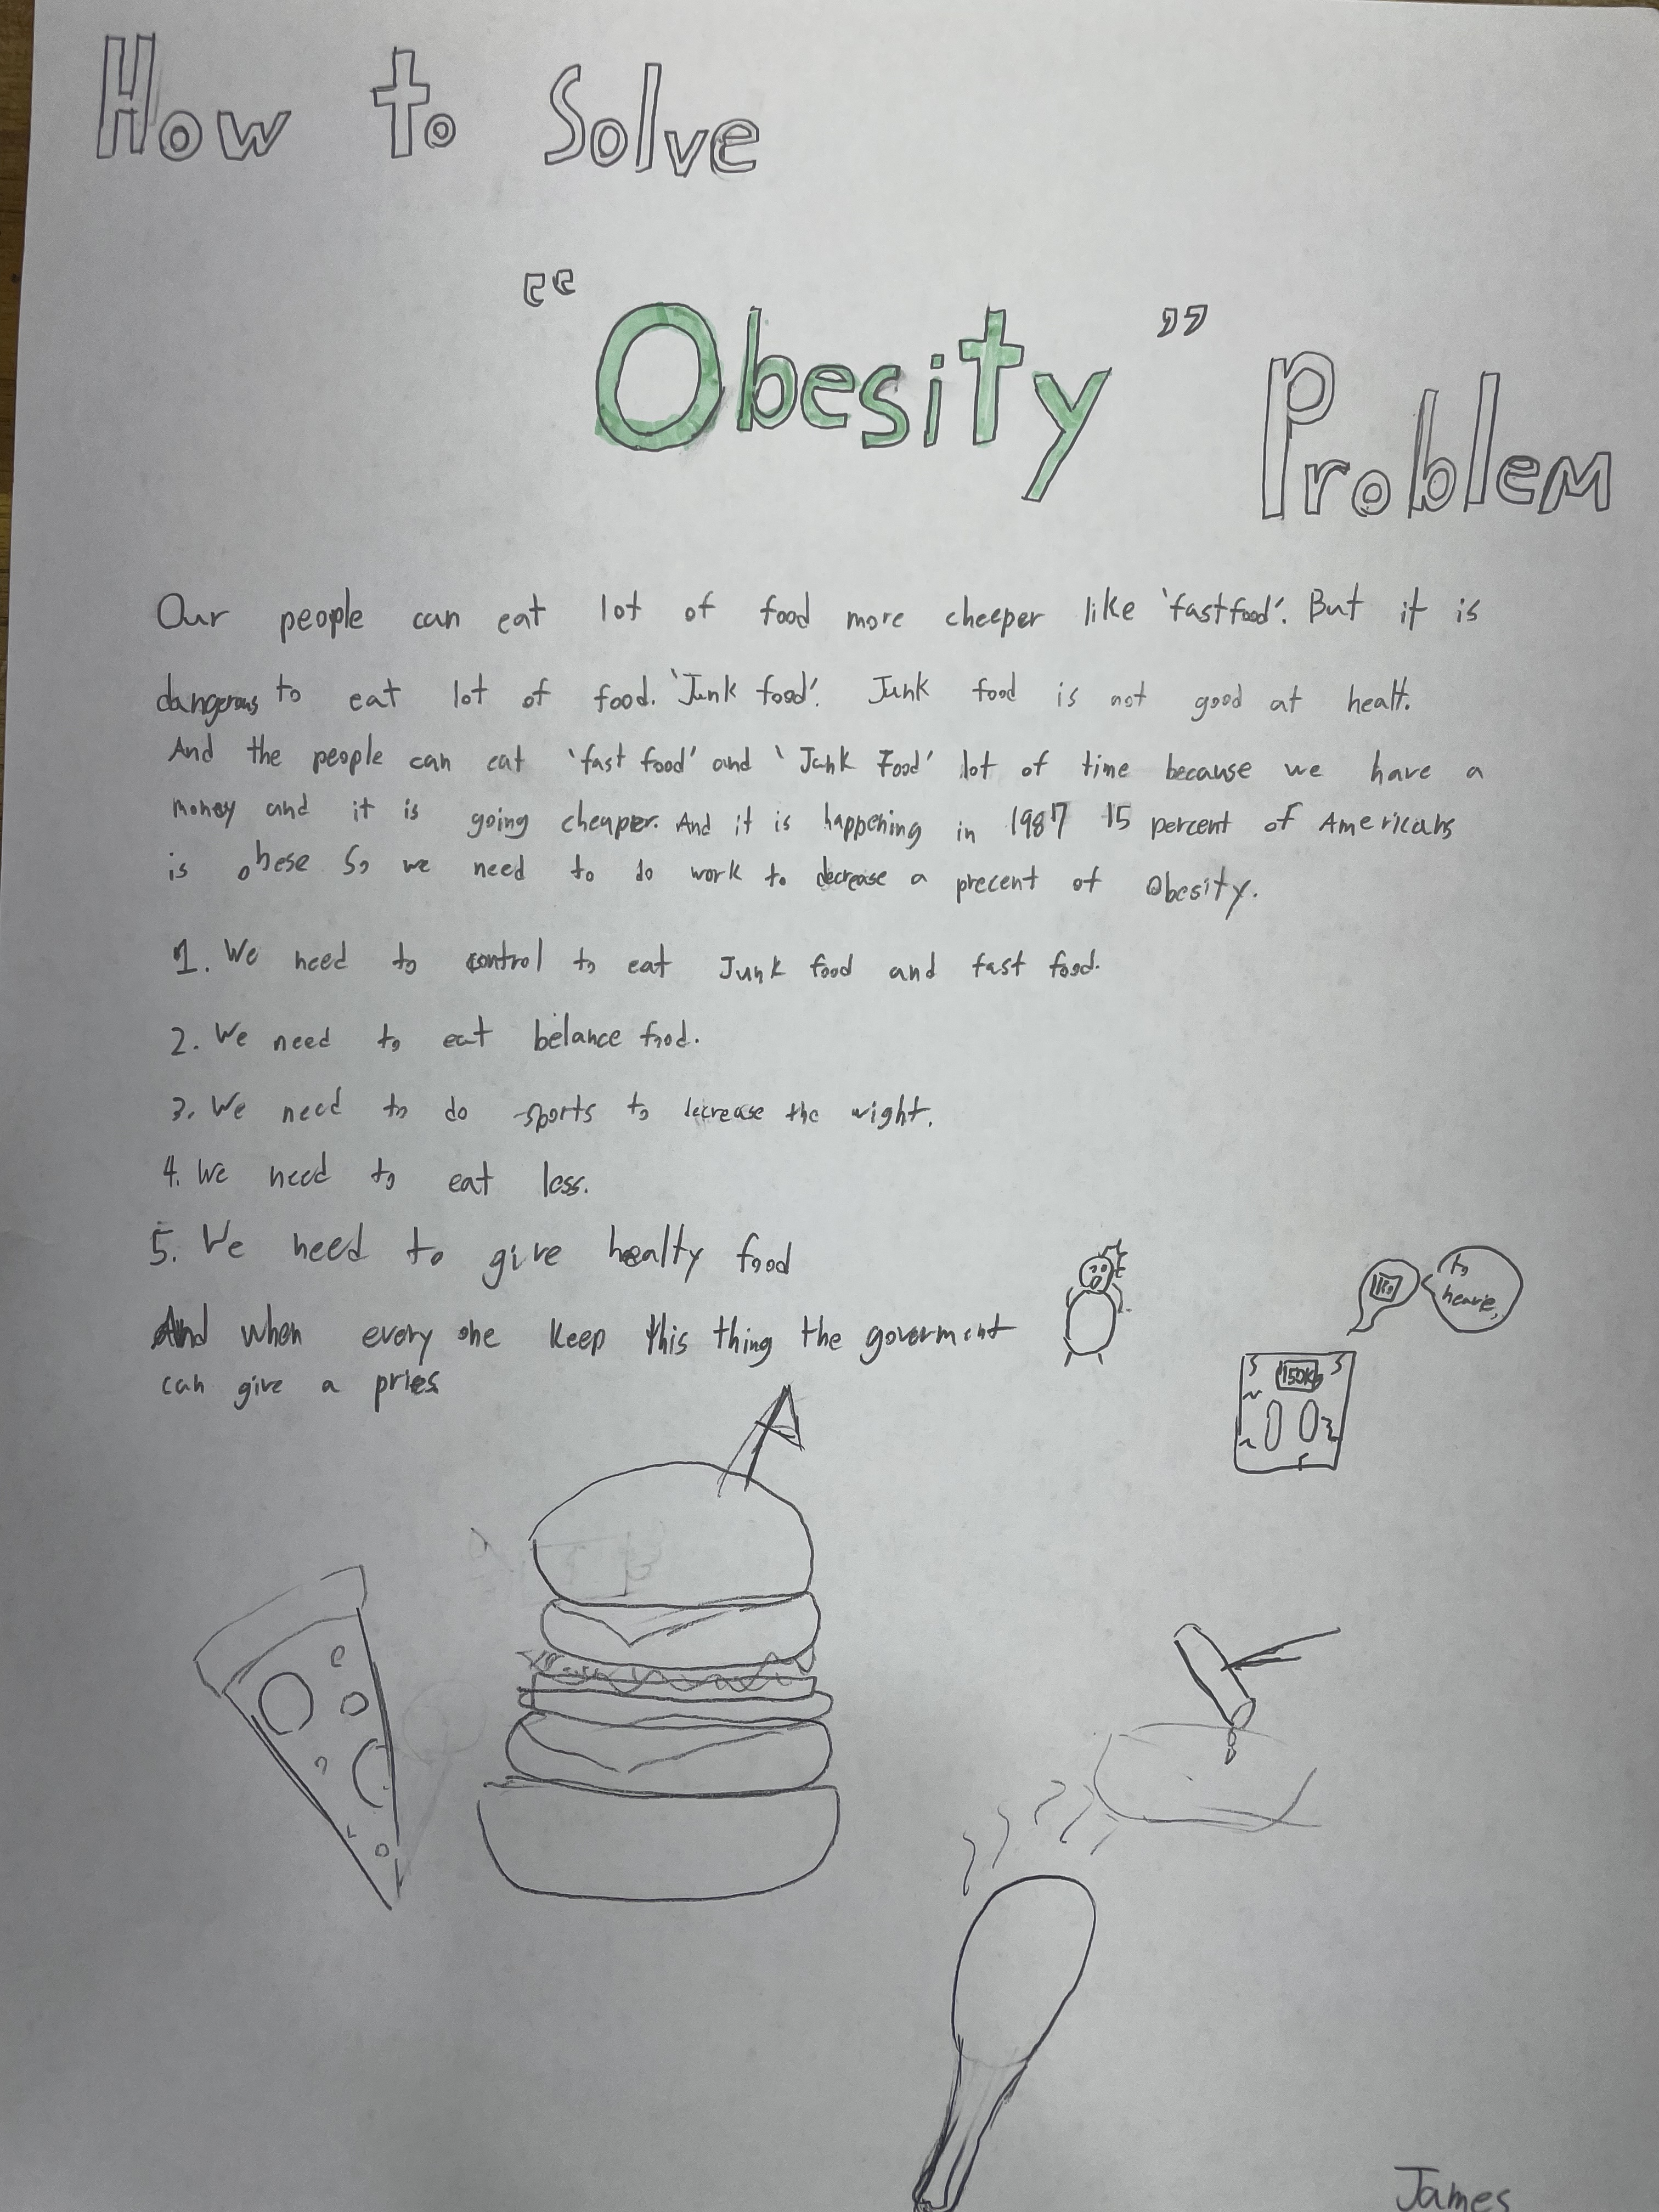 How to Solve
"Obesity" Problem
Our people can eat lot of food more cheeper like 'fastfood'. But it is
dangerous to eat lot of food. 'Junk food'. Junk food is not good at healt.
And the people can eat 'fast food' and 'Junk Food' lot of time because we have a
money and it is going cheaper. And it is happening in 1987 15 percent of Americans
is obese So we need to do work to decrease a precent of Obesity.
1. We need to control to eat Junk food and fast food.
2. We need to eat belance food.
3. We need to do sports to decrease the wight.
4. We need to eat less.
5. We need to give healty food
And when every one keep this thing the goverment
can give a pries
to
heavie,
150kg
James